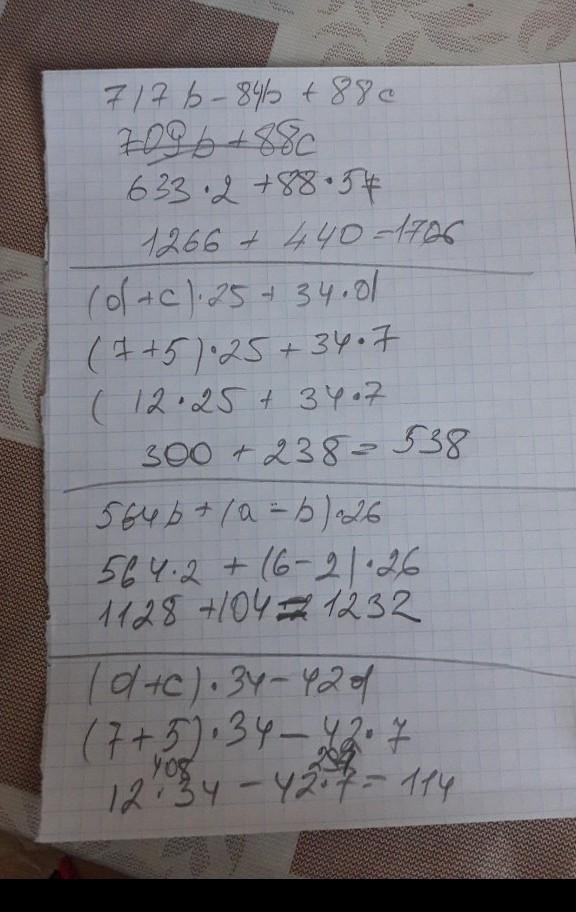 717b - 84b + 88c
709b + 88c
633·2 + 88·5
1266 + 440 = 1706
(d+c)·25 + 34·d
(7+5)·25 + 34·7
( 12·25 + 34·7
300 + 238 = 538
564b + (a-b)·26
564·2 + (6-2)·26
1128 + 104 = 1232
(d+c)·34 - 42d
(7+5)·34 - 42·7
408 294
12·34 - 42·7 = 114